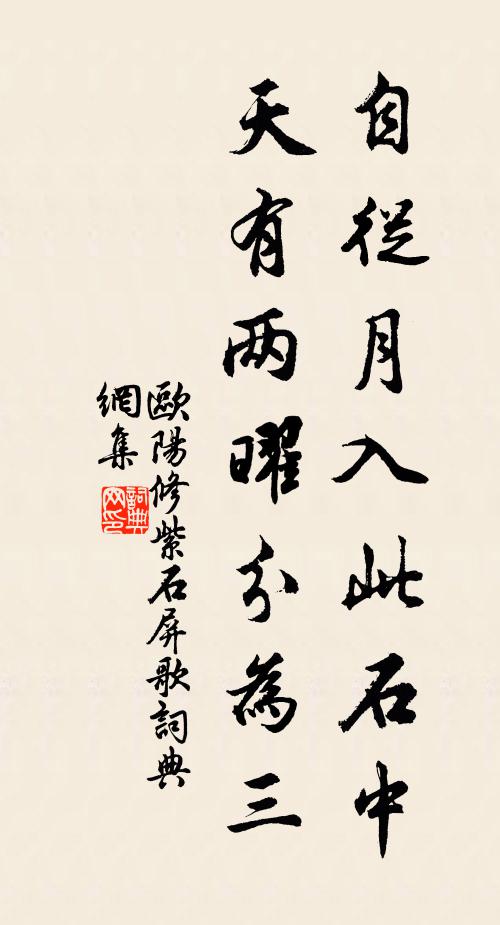 自從月入此石中
天有两曜分為三
歐陽修紫石屏歌詞典
網集
詞典
网印